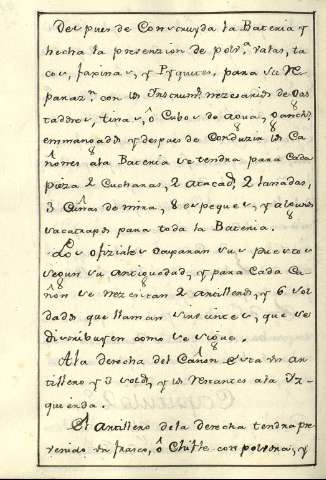 Despues de Construyda la Bateria y
hecha la prevenzion de polv.ª valas, ta
cos, faxinas, y Piquetes, para su Re
paraz.n con los Instrumt.s nezesarios de Das
tadores, tinas, ô Cubos de agua, Ganchos
emmangados y despues de Conduzir los Ca
ñones ala Bateria se tendra para Cada
pieza 2 Cucharas, 2 atacad.s, 2 lanadas,
3 Cuñas de mira, 8 espeques, y algunos
sacatrapos para toda la Bateria.
Los ofiziales Ocuparan sus puestos
segun su antiguedad, y para Cada Ca
ñon se nezesitan 2 artilleros, y 6 sol
dados que llaman sirvientes, que se
distribuyen como se sigue.
Ala derecha del Cañon esta un ar
tillero y 3 sold.s, y los restantes ala Yz
quierda.
El artillero dela derecha tendra pre
venido un frasco, ô Chifle con polvora, y